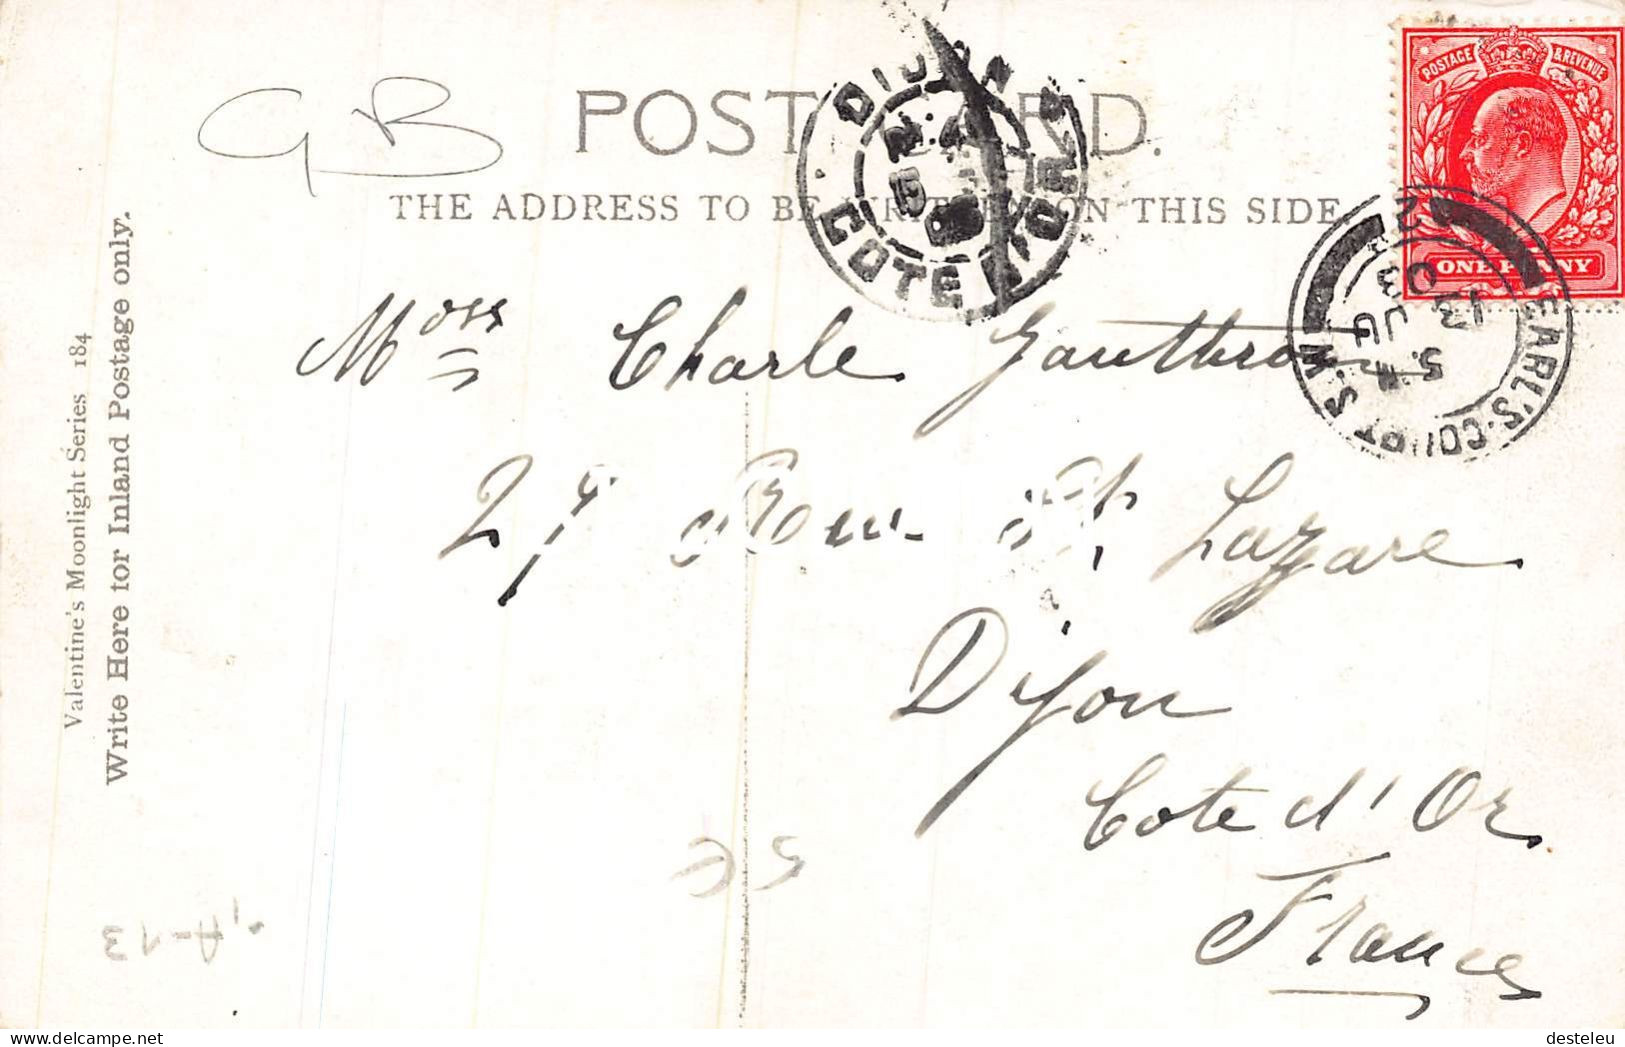 GB
POST CARD.
THE ADDRESS TO BE WRITTEN ON THIS SIDE.
POSTAGE & REVENUE
ONE PENNY
DIJON
COTE D'OR
EARL'S COURT S.W.
5.
13 JU
03
2
Valentine's Moonlight Series 184
Write Here for Inland Postage only.
Charle Gauthron
27 Rue St Lazare
Dijon
Cote d'Or
France
5€
A-13
desteleu